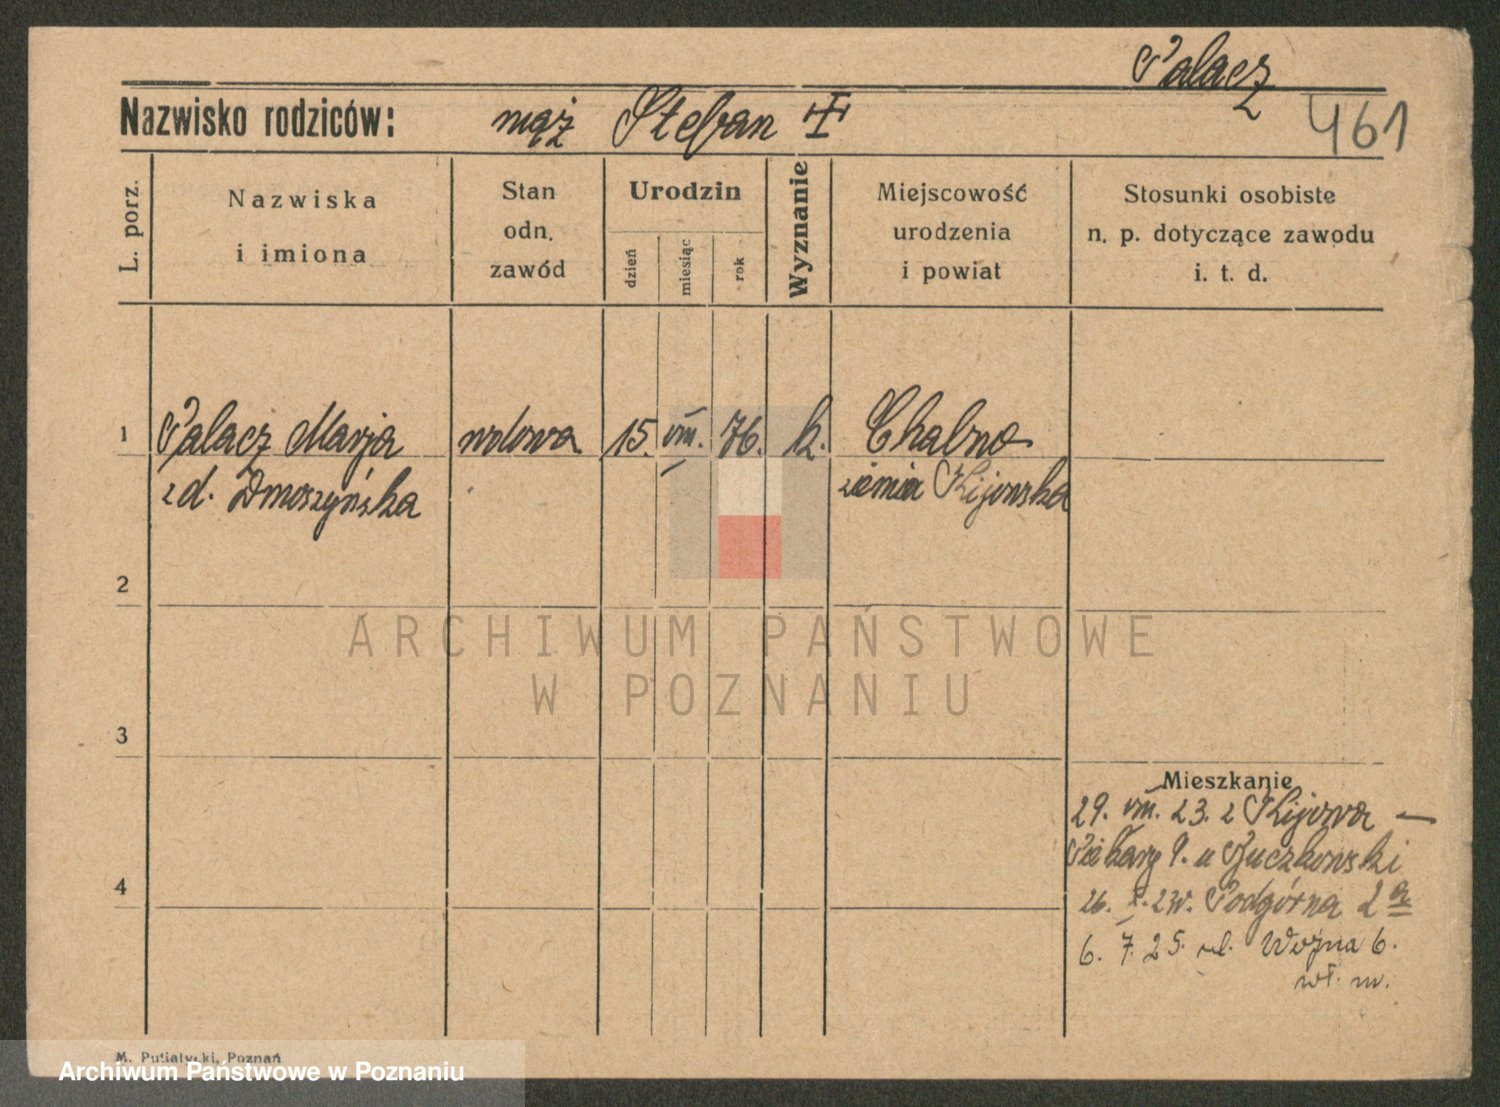 Palacz
Nazwisko rodziców: mąż Stefan
461
L. porz.
Nazwiska
i imiona
Stan
odn.
zawód
Urodzin
dzień
miesiąc
rok
Wyznanie
Miejscowość
urodzenia
i powiat
Stosunki osobiste
n. p. dotyczące zawodu
i. t. d.
1 Palacz Marja wdowa 15. VIII. 76. k. Chabno
z d. Dmoszyńska ziemia Kijowska
2
ARCHIWUM PAŃSTWOWE
W POZNANIU
3
Mieszkanie
29. VIII. 23. z Kijowa —
Piekary 9. u
4
26. X. 23r. Podgórna 2a
6. 7. 25. ul. Woźna 6.
wł. m.
M. Putiatycki, Poznań
Archiwum Państwowe w Poznaniu